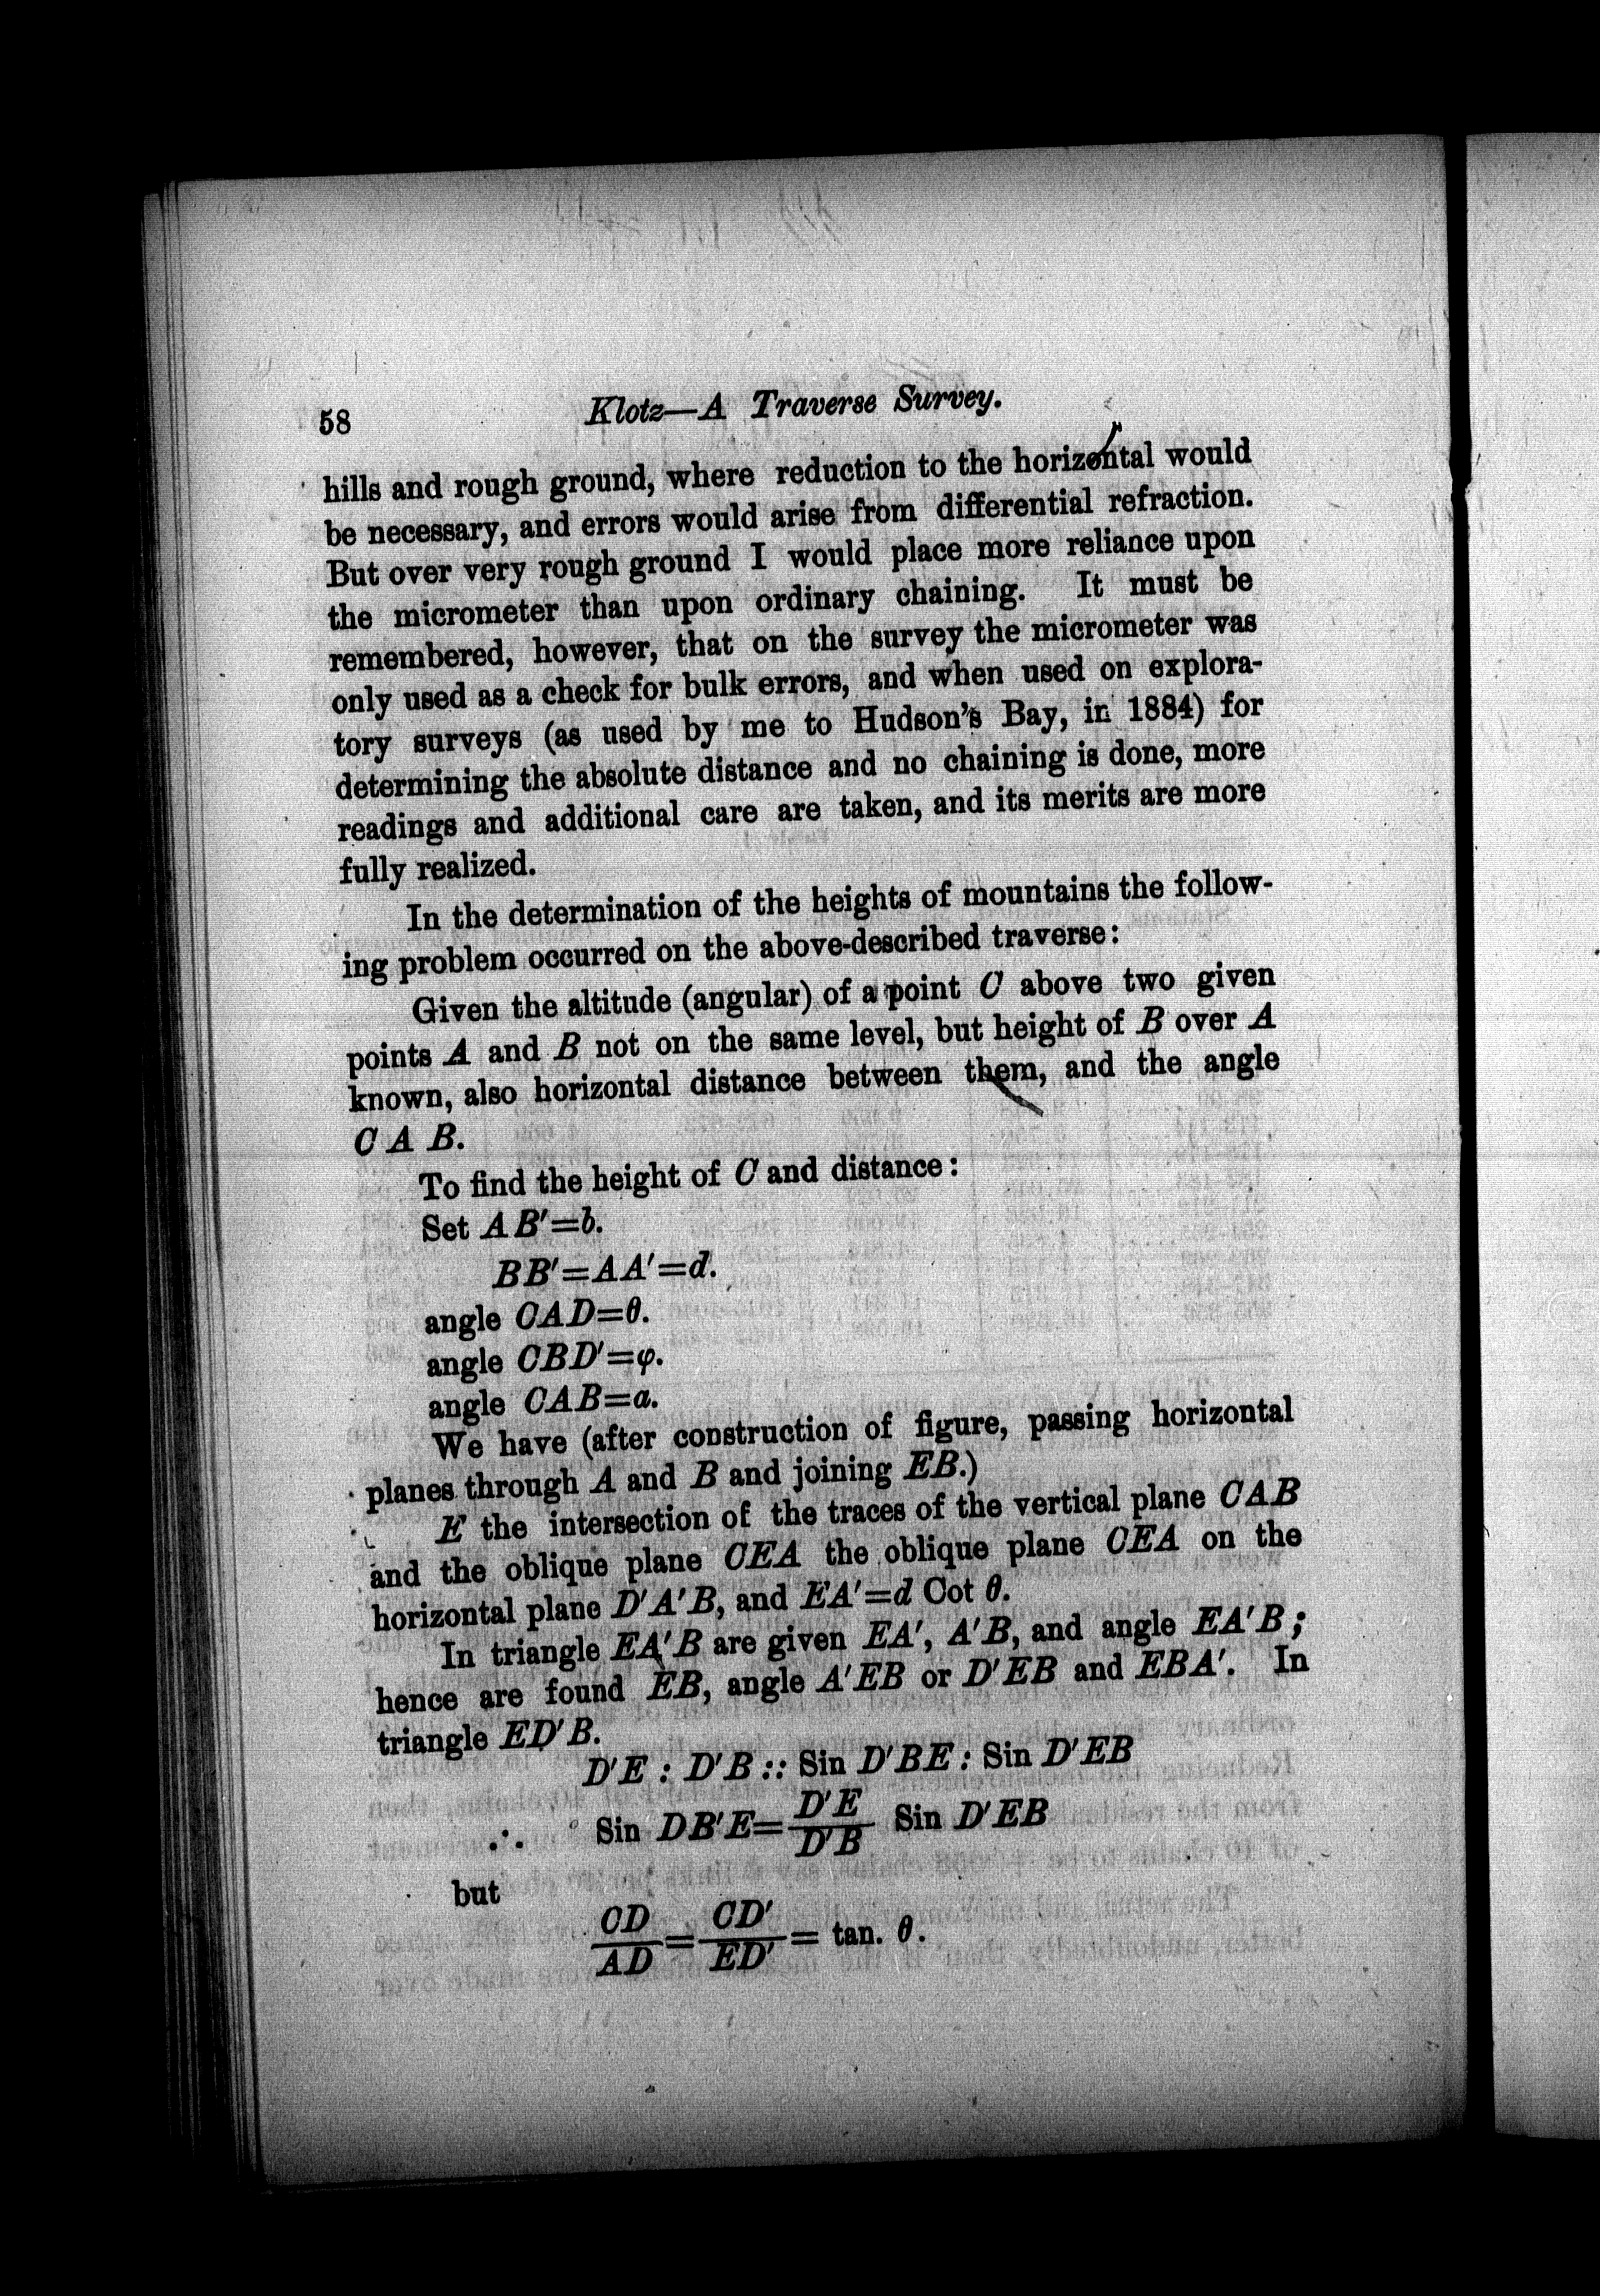 58
Klotz—A Traverse Survey.
hills and rough ground, where reduction to the horizontal would
be necessary, and errors would arise from differential refraction.
But over very rough ground I would place more reliance upon
the micrometer than upon ordinary chaining. It must be
remembered, however, that on the survey the micrometer was
only used as a check for bulk errors, and when used on explora-
tory surveys (as used by me to Hudson's Bay, in 1884) for
determining the absolute distance and no chaining is done, more
readings and additional care are taken, and its merits are more
fully realized.
In the determination of the heights of mountains the follow-
ing problem occurred on the above-described traverse:
Given the altitude (angular) of a point C above two given
points A and B not on the same level, but height of B over A
known, also horizontal distance between them, and the angle
C A B.
To find the height of C and distance:
Set AB'=b.
BB'=AA'=d.
angle CAD=θ.
angle CBD'=φ.
angle CAB=a.
We have (after construction of figure, passing horizontal
planes through A and B and joining EB.)
E the intersection of the traces of the vertical plane CAB
and the oblique plane CEA the oblique plane CEA on the
horizontal plane D'A'B, and EA'=d Cot θ.
In triangle EA'B are given EA', A'B, and angle EA'B;
hence are found EB, angle A'EB or D'EB and EBA'. In
triangle ED'B.
D'E : D'B :: Sin D'BE : Sin D'EB
∴ Sin DB'E= D'E/D'B Sin D'EB
but
CD/AD = CD'/ED' = tan. θ.